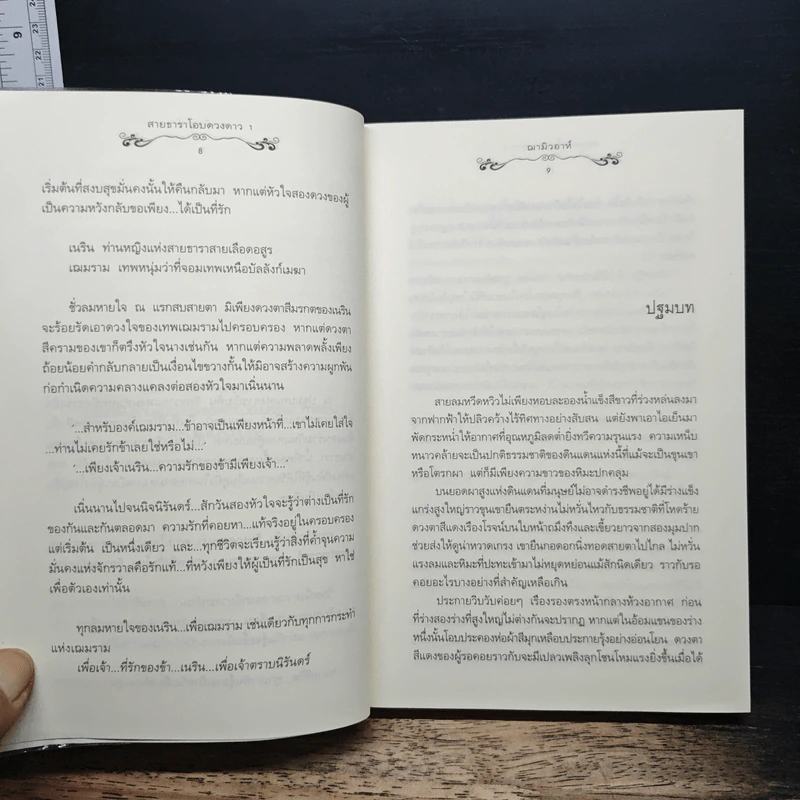 สายธาราโอบดวงดาว 1
8
เริ่มต้นที่สงบสุขมั่นคงนั้นให้คืนกลับมา หากแต่หัวใจสองดวงของผู้
เป็นความหวังกลับขอเพียง...ได้เป็นที่รัก
เนริน ท่านหญิงแห่งสายธาราสายเลือดอสูร
เฌมราม เทพหนุ่มว่าที่จอมเทพเหนือบัลลังก์เมฆา
ชั่วลมหายใจ ณ แรกสบสายตา มีเพียงดวงตาสีมรกตของเนริน
จะร้อยรัดเอาดวงใจของเทพเฌมรามไปครอบครอง หากแต่ดวงตา
สีครามของเขาก็ตรึงหัวใจนางเช่นกัน หากแต่ความพลาดพลั้งเพียง
ถ้อยน้อยคำกลับกลายเป็นเงื่อนไขขวางกั้นให้มิอาจสร้างความผูกพัน
ก่อกำเนิดความคลางแคลงต่อสองหัวใจมาเนิ่นนาน
'...สำหรับองค์เฌมราม...ข้าอาจเป็นเพียงหน้าที่...เขาไม่เคยใส่ใจ
...ท่านไม่เคยรักข้าเลยใช่หรือไม่...'
'...เพียงเจ้าเนริน...ความรักของข้ามีเพียงเจ้า...'
เนิ่นนานไปจนนิจนิรันดร์...สักวันสองหัวใจจะรู้ว่าต่างเป็นที่รัก
ของกันและกันตลอดมา ความรักที่คอยหา...แท้จริงอยู่ในครอบครอง
แต่เริ่มต้น เป็นหนึ่งเดียว และ...ทุกชีวิตจะเรียนรู้ว่าสิ่งที่ค้ำจุนความ
มั่นคงแห่งจักรวาลคือรักแท้...ที่หวังเพียงให้ผู้เป็นที่รักเป็นสุข หาใช่
เพื่อตัวเองเท่านั้น
ทุกลมหายใจของเนริน...เพื่อเฌมราม เช่นเดียวกับทุกการกระทำ
แห่งเฌมราม
เพื่อเจ้า...ที่รักของข้า...เนริน...เพื่อเจ้าตราบนิรันดร์
ฌามิวอาห์
9
ปฐมบท
สายลมหวีดหวิวไม่เพียงหอบละอองน้ำแข็งสีขาวที่ร่วงหล่นลงมา
จากฟากฟ้าให้ปลิวคว้างไร้ทิศทางอย่างสับสน แต่ยังพาเอาไอเย็นมา
พัดกระหน่ำให้อากาศที่อุณหภูมิลดต่ำยิ่งทวีความรุนแรง ความเหน็บ
หนาวคล้ายจะเป็นปกติธรรมชาติของดินแดนแห่งนี้ที่แม้จะเป็นขุนเขา
หรือโตรกผา แต่ก็มีเพียงความขาวของหิมะปกคลุม
บนยอดผาสูงแห่งดินแดนที่มนุษย์ไม่อาจดำรงชีพอยู่ได้มีร่างแข็ง
แกร่งสูงใหญ่ราวขุนเขายืนตระหง่านไม่หวั่นไหวกับธรรมชาติที่โหดร้าย
ดวงตาสีแดงเรืองโรจน์บนใบหน้าถมึงทึงและเขี้ยวยาวจากสองมุมปาก
ช่วยส่งให้ดูน่าหวาดเกรง เขายืนกอดอกนิ่งทอดสายตาไปไกล ไม่หวั่น
แรงลมและหิมะที่ปะทะเข้ามาไม่หยุดหย่อนแม้สักนิดเดียว ราวกับรอ
คอยอะไรบางอย่างที่สำคัญเหลือเกิน
ประกายวิบวับค่อยๆ เรืองรองตรงหน้ากลางห้วงอากาศ ก่อน
ที่ร่างสองร่างที่สูงใหญ่ไม่ต่างกันจะปรากฏ หากแต่ในอ้อมแขนของร่าง
หนึ่งนั้นโอบประคองห่อผ้าสีมุกเหลือบประกายรุ้งอย่างอ่อนโยน ดวงตา
สีแดงของผู้รอคอยราวกับจะมีเปลวเพลิงลุกโชนโหมแรงยิ่งขึ้นเมื่อได้
9
24
23
22
21